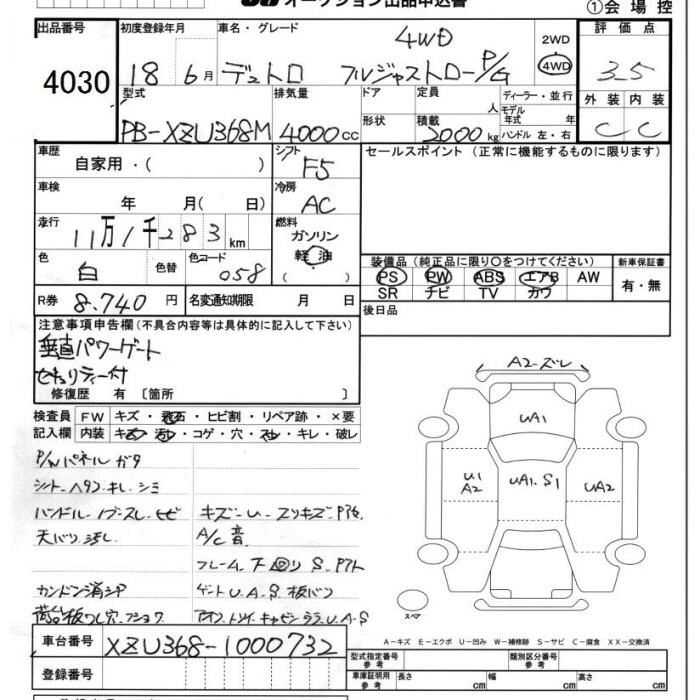 オークション出品申込書
①会場控
出品番号 4030
初度登録年月 18 6月
車名・グレード 4WD
デュトロ フルジャストロー P/G
2WD
4WD
評価点 3.5
型式 PB-XZU368M
排気量 4000cc
ドア
形状
定員 人
積載 2000kg
ディーラー・並行
モデル年式 年
ハンドル 左・右
外装 内装
C C
車歴 自家用・( )
シフト F5
セールスポイント (正常に機能するものに限ります)
車検 年 月( 日)
冷房 AC
走行 11万1千283km
燃料 ガソリン
軽油
( )
色 白 色替 色コード 058
装備品 (純正品に限り○をつけてください)
新車保証書
PS PW ABS エアB AW
SR ナビ TV カワ
有・無
R券 8.740円 名変通知期限 月 日
後日品
注意事項申告欄(不具合内容等は具体的に記入して下さい)
垂直パワーゲート
セキュリティー付
修復歴 有 〔箇所 〕
検査員記入欄
FW キズ・飛石・ヒビ割・リペア跡・×要
内装 キズ・汚れ・コゲ・穴・スレ・キレ・破レ
P/Wパネル ガタ
シート.ヘタリ.キレ.シミ
ハンドル.ノブ.スレ.ヒビ キズ.U.スリキズ.
天バリ汚レ. A/C音
フレーム.下回り S.
板バリ
荷台板ワレ穴.フショク
U.A.S
A2-ズレ
UA1
U1
A2
UA1.S1
UA2
スペア
A-キズ E-エクボ U-凹み W-補修跡 S-サビ C-腐食 XX-交換済
車台番号 XZU368-1000732
型式指定番号 参考 類別区分番号 参考
登録番号
車庫証明用 参考 長さ cm 幅 cm 高さ cm